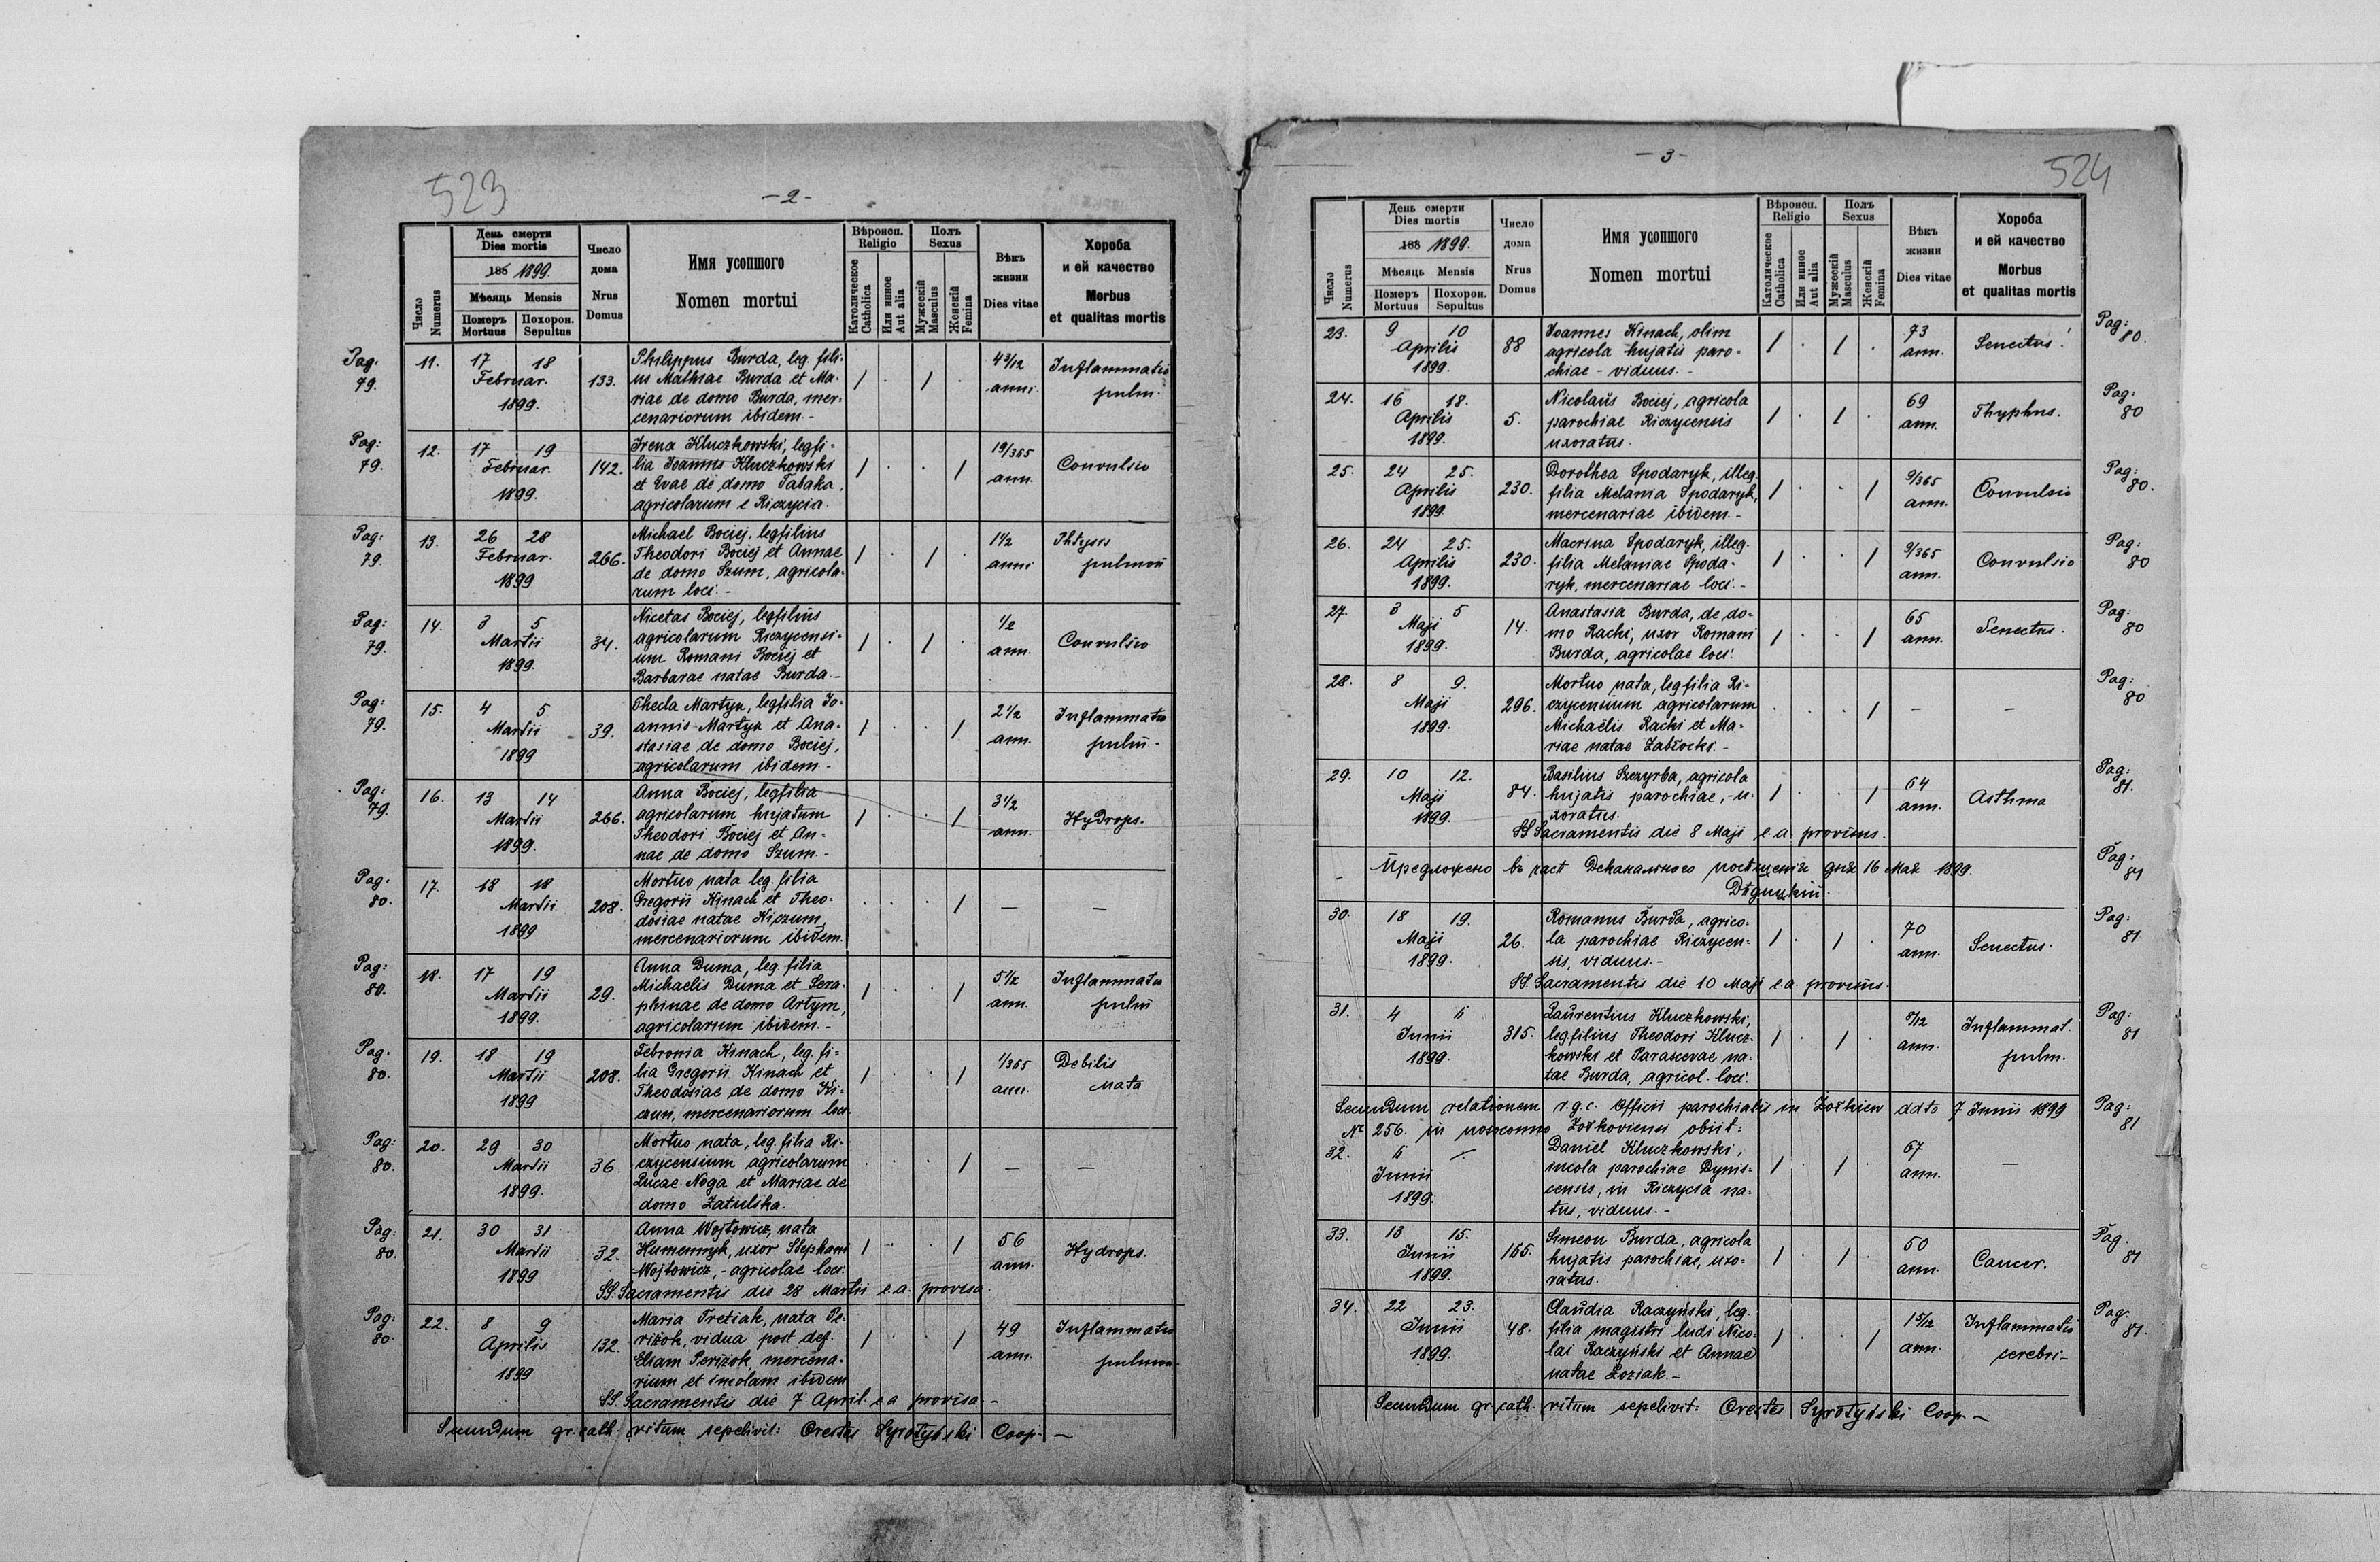 523
- 2 -
Число Numerus
День смерти
Dies mortis
188 1899.
Мѣсяць Mensis
Померъ Mortuus
Похорон. Sepultus
Число дома
Nrus Domus
Имя усопшого
Nomen mortui
Вѣроисп.
Religio
Католическое Catholica
Или инное Aut alia
Полъ
Sexus
Мужескій Masculus
Женскій Femina
Вѣкъ жизни
Dies vitae
Хороба
и ей качество
Morbus
et qualitas mortis
Pag: 79. 11. 17 18 Februar. 1899. 133.
Philippus Burda, leg. fili-
us Mathiae Burda et Ma-
riae de domo Burda, mer-
cenariorum ibidem.-
/ . / . 4 3/12 anni. Inflammatio pulm.
Pag: 79. 12. 17 19 Februar. 1899. 142.
Irena Kluczkowski, legfi-
lia Joannis Kluczkowski
et Evae de domo Tabaka,
agricolarum e Riczycia.
/ . . / 19/365 ann. Convulsio
Pag: 79. 13. 26 28 Februar. 1899 266.
Michael Bociej, legfilius
Theodori Bociej et Annae
de domo Szum, agricola-
rum loci.-
/ . / . 1 1/2 anni Phtysis pulmon
Pag: 79. 14. 3 5 Martii 1899. 34.
Nicetas Bociej, legfilius
agricolarum Riczycensi-
um Romani Bociej et
Barbarae natae Burda.-
/ . / . 1/2 ann. Convulsio
Pag: 79. 15. 4 5 Martii 1899 39.
Thecla Martyn, legfilia Jo-
annis Martyn et Ana-
stasiae de domo Bociej,
agricolarum ibidem.-
/ . . / 2 1/2 ann. Inflammatio pulm.
Pag: 79. 16. 13 14 Martii 1899. 266.
Anna Bociej, legfilia
agricolarum hujatum
Theodori Bociej et An-
nae de domo Szum.-
/ . . / 3 1/2 ann. Hydrops.
Pag. 80. 17. 18 18 Martii 1899 208.
Mortuo nata leg. filia
Gregorii Kinach et Theo-
dosiae natae Kiczum,
mercenariorum ibidem.
. . . / — —
Pag: 80. 18. 17 19 Martii 1899. 29.
Anna Duma, leg. filia
Michaelis Duma et Sera-
phinae de domo Artym,
agricolarum ibidem.-
/ . . / 5 1/2 ann. Inflammatio pulm
Pag. 80. 19. 18 19 Martii 1899 208.
Febronia Kinach, leg. fi-
lia Gregorii Kinach et
Theodosiae de domo Ki-
czun, mercenariorum loci.
/ . . / 1/365 ann. Debilis nata
Pag: 80. 20. 29 30 Martii 1899. 36.
Mortuo nata, leg. filia Ri-
czycensium agricolarum
Lucae Noga et Mariae de
domo Zatulska.
. . . / — —
Pag: 80. 21. 30 31 Martii 1899 32.
Anna Wojtowicz, nata
Humennyk, uxor Stephani
Wojtowicz,- agricolae loci.
/ . . / 56 ann. Hydrops.
SS. Sacramentis die 28 Martii e.a. provisa.
Pag: 80. 22. 8 9 Aprilis 1899 132.
Maria Tretiak, nata Pe-
rizok, vidua post def.
Eliam Perizok, mercena-
rium et incolam ibidem
/ . . / 49 ann. Inflammatio pulmon.
SS. Sacramentis die 7. April. e a provisa.-
Secundum gr. cath. ritum sepelivit: Orestes Syrotyński Coop.-
524
- 3 -
Число Numerus
День смерти
Dies mortis
188 1899.
Мѣсяць Mensis
Померъ Mortuus
Похорон. Sepultus
Число дома
Nrus Domus
Имя усопшого
Nomen mortui
Вѣроисп.
Religio
Католическое Catholica
Или инное Aut alia
Полъ
Sexus
Мужескій Masculus
Женскій Femina
Вѣкъ жизни
Dies vitae
Хороба
и ей качество
Morbus
et qualitas mortis
23. 9 10 Aprilis 1899. 88
Joannes Kinach, olim
agricola hujatis paro-
chiae - viduus.-
/ . / . 73 ann. Senectus. Pag: 80.
24. 16 18. Aprilis 1899. 5.
Nicolaus Bociej, agricola
parochiae Riczycensis
uxoratus.
/ . / . 69 ann. Thyphus. Pag: 80
25. 24 25. Aprilis 1899. 230.
Dorothea Spodaryk, illeg.
filia Melania Spodaryk,
mercenariae ibidem.-
/ . . / 9/365 ann. Convulsio Pag: 80.
26. 24 25. Aprilis 1899. 230.
Macrina Spodaryk, illeg.
filia Melaniae Spoda-
ryk, mercenariae loci.-
/ . . / 9/365 ann. Convulsio Pag: 80
27. 3 5 Maji 1899. 14.
Anastasia Burda, de do-
mo Racki, uxor Romani
Burda, agricolae loci.
/ . . / 65 ann. Senectus. Pag: 80
28. 8 9. Maji 1899. 296.
Mortuo nata, legfilia Ri-
czycensium agricolarum
Michaelis Racki et Ma-
riae natae Zabłocki.-
. . . / — — Pag: 80
29. 10 12. Maji 1899. 84.
Basilius Szczyrba, agricola
hujatis parochiae,- u-
xoratus.
/ . . / 64 ann. Asthma Pag: 81.
SS Sacramentis die 8 Maji e.a. provisus.
Предложено въ часѣ Деканального посѣщенія дня 16 Мая 1899. Pag: 81
Дѣдицкій.
30. 18 19. Maji 1899. 26.
Romanus Burda, agrico-
la parochiae Riczycen-
sis, viduus.-
/ . / . 70 ann. Senectus. Pag: 81
SS. Sacramentis die 10 Maji e.a. provisus.
31. 4 6 Junii 1899. 315.
Laurentius Kluczkowski,
legfilius Theodori Klucz-
kowski et Parascevae na-
tae Burda, agricol. loci.
/ . / . 8/12 ann. Inflammat. pulm. Pag: 81
Secundum relationem r.g.c. Officii parochialis in Żołkiew ddto 7 Junii 1899 Pag: 81
No 256. in nosocomio Żołkoviensi obiit:
32. 6 Junii 1899.
Daniel Kluczkowski,
incola parochiae Dynis-
censis, in Riczycia na-
tus, viduus.-
/ . / . 67 ann. —
33. 13 15. Junii 1899. 165.
Simeon Burda, agricola
hujatis parochiae, uxo-
ratus.
/ . / . 50 ann. Cancer. Pag. 81
34. 22 23. Junii 1899. 48.
Claudia Raczyński, leg.
filia magistri ludi Nico-
lai Raczyński et Annae
natae Łoziak.-
/ . . / 1 5/12 ann. Inflammatio cerebri- Pag. 81.
Secundum gr. cath. ritum sepelivit: Orestes Syrotyński Coop.-